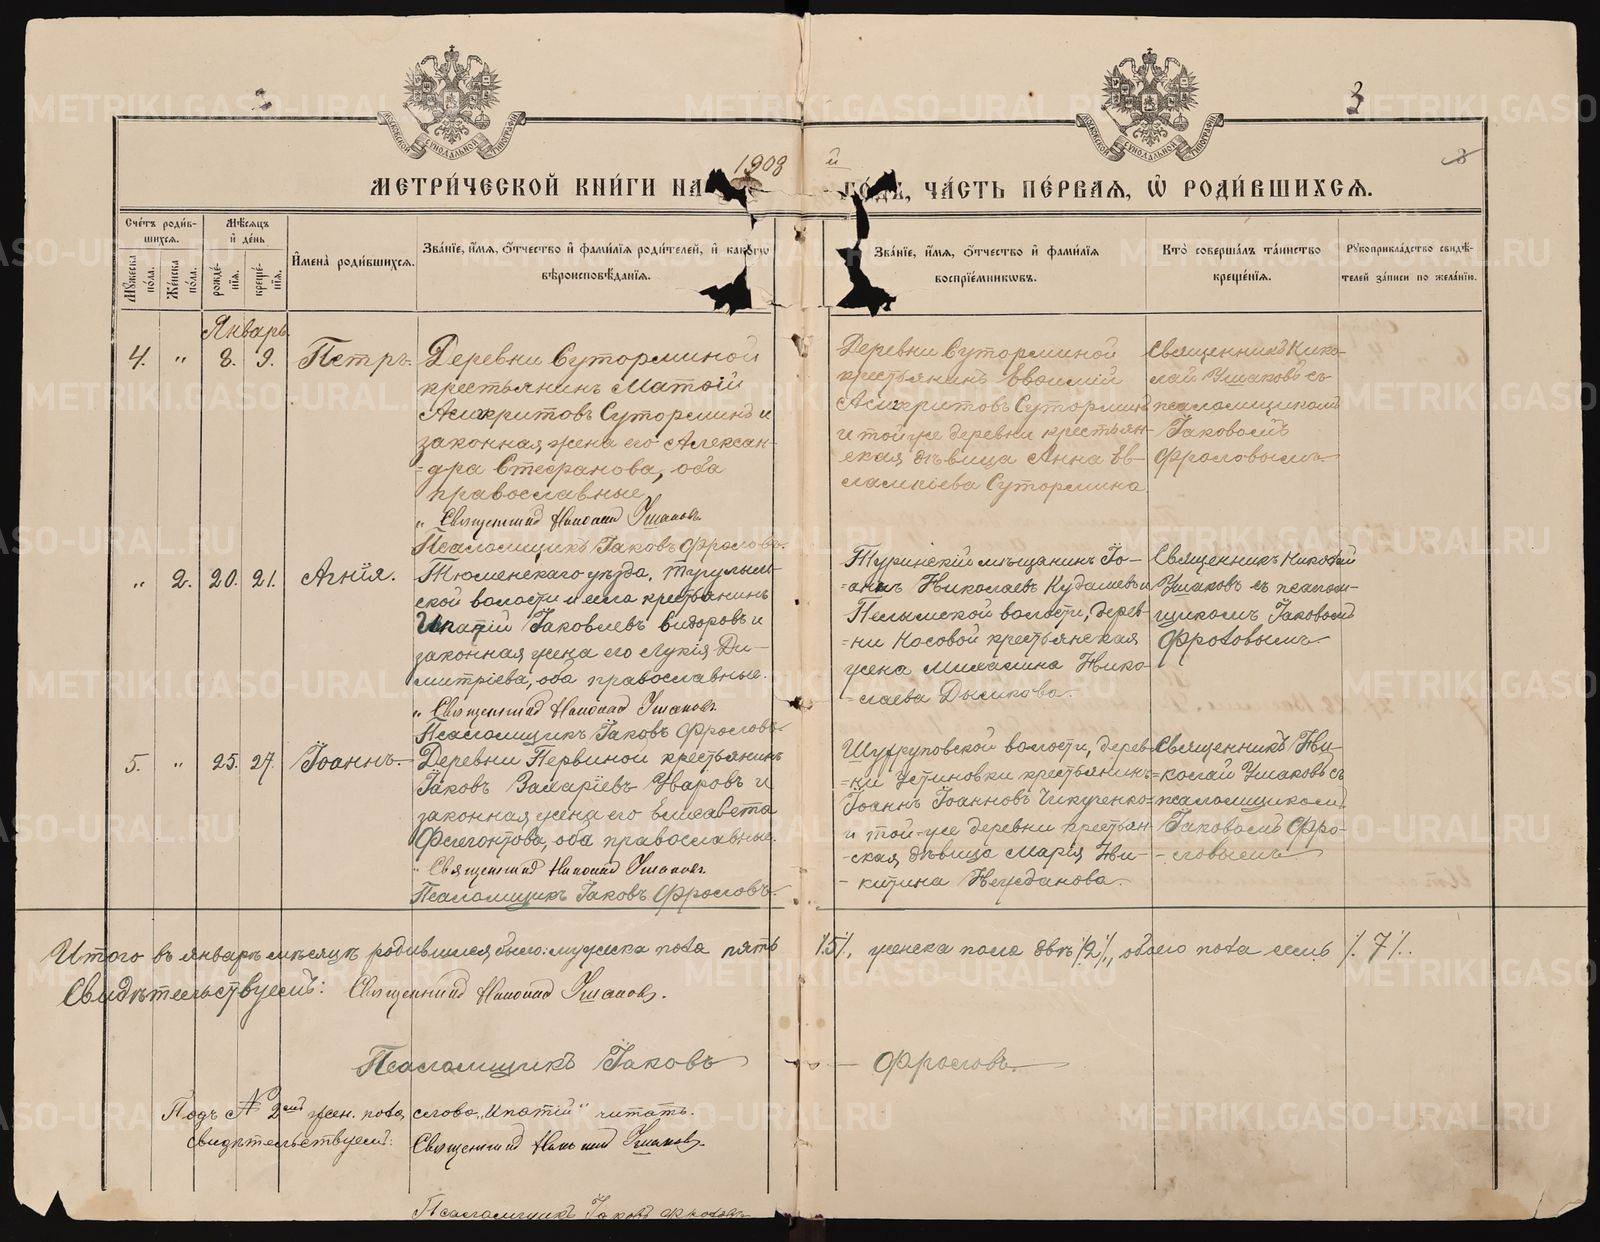 3
1908 й
МЕТРИ́ЧЕСКОЙ КНИ́ГИ НА
ГО́ДЪ, ЧА́СТЬ ПЕ́РВАЯ, Ѿ РОДИ́ВШИХСѦ.
Сче́тъ роди́в-
шихся.
Мѣ́сяцъ
и҆ де́нь
Мꙋ́жеска по́ла.
Же́нска по́ла.
рожде́нїѧ.
креще́нїѧ.
И҆мена̀ роди́вшихся.
Зва́нїе, и҆́мѧ, ѻ҆́тчество и҆ фами́лїѧ роди́телей, и҆ како́гѡ
вѣроисповѣ́данїѧ.
Зва́нїе, и҆́мѧ, ѻ҆́тчество и҆ фами́лїѧ
воспрїе́мникѡвъ.
Кто̀ соверша́лъ та́инство
креще́нїѧ.
Рꙋкоприкла́дство свидѣ́-
телей за́писи по жела́нїю.
Январь
4. " 8. 9. Петръ.
Деревни Суторминой
крестьянинъ Матѳій
Асигкритовъ Суторминъ и
законная жена его Алексан-
дра Стефанова, оба
православные
Священникъ Николай Ушаковъ.
Псаломщикъ Іаковъ Фроловъ.
Деревни Суторминой
крестьянинъ Евѳимій
Асигкритовъ Суторминъ
и той же деревни крестьян-
ская дѣвица Анна Ев-
лампіева Сутормина
Священникъ Нико-
лай Ушаковъ съ
псаломщикомъ
Іаковомъ
Фроловымъ.
" 2. 20. 21. Агнія.
Тюменскаго уѣзда, Тугулым-
ской волости и села крестьянинъ
Ипатій Іаковлевъ Видоровъ и
законная жена его Лукія Ди-
митріева, оба православные.
Священникъ Николай Ушаковъ
Псаломщикъ Іаковъ Фроловъ
Туринскій мѣщанинъ Іо-
аннъ Николаевъ Кудашевъ и
Пелымской волости, дерев-
ни Носовой крестьянская
жена Михалина Нико-
лаева Дымкова.
Священникъ Николай
Ушаковъ съ псалом-
щикомъ Іаковомъ
Фроловымъ
5. " 25. 27. Іоаннъ.
Деревни Первиной крестьянинъ
Іаковъ Захаріевъ Уваровъ и
законная жена его Елисавета
Ферапонтова, оба православные.
Священникъ Николай Ушаковъ
Псаломщикъ Іаковъ Фроловъ
Шухруповской волости, дерев-
ни Устиновки крестьянинъ
Іоаннъ Іоанновъ Чикуренко
и той-же деревни крестьян-
ская дѣвица Марія Ни-
китина Нежданова.
Священникъ Ни-
колай Ушаковъ съ
псаломщикомъ
Іаковомъ Фро-
ловымъ
Итого въ январѣ мѣсяцѣ родившихся было: мужска пола пять /5/, женска пола двѣ /2/, обоего пола семь /7/.
Свидѣтельствуемъ: Священникъ Николай Ушаковъ.
Псаломщикъ Іаковъ Фроловъ
Подъ № 2емъ жен. пола, слово "Ипатій" читать.
Свидѣтельствуемъ: Священникъ Николай Ушаковъ.
Псаломщикъ Іаковъ Фроловъ